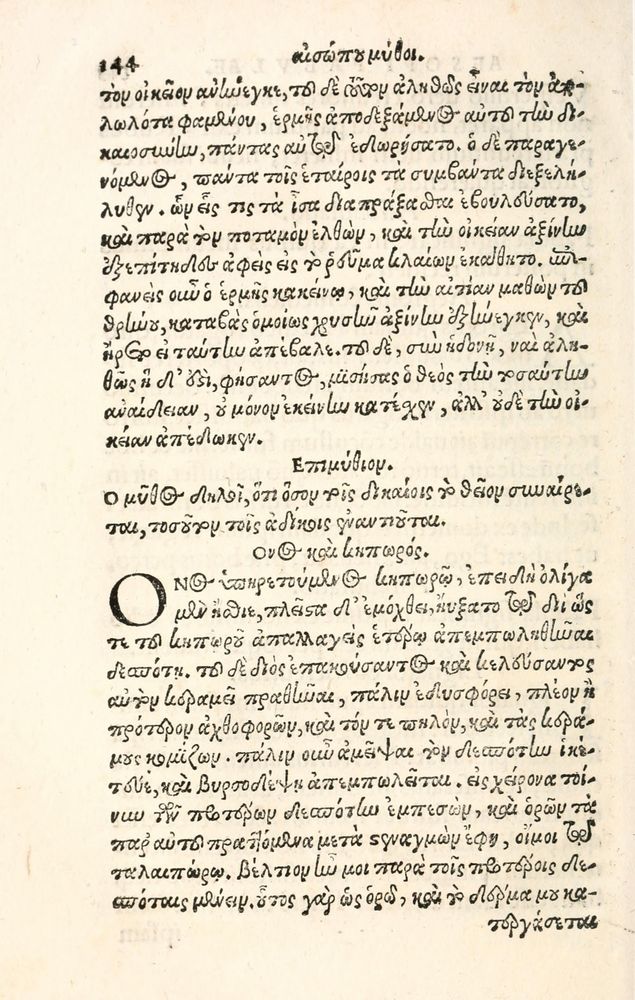 144 αἰσώπου μύθοι.
τὸν οἰκεῖον ἀνήνεγκε, τοῦ δὲ τοῦτον ἀληθῶς εἶναι τὸν ἀπο-
λωλότα φαμένου, ἑρμῆς ἀποδεξάμενος αὐτοῦ τὴν δι-
καιοσύνην, πάντας αὐτῷ ἐδωρήσατο. ὁ δὲ παραγε-
νόμενος, πάντα τοῖς ἑταίροις τὰ συμβάντα διεξελή-
λυθεν. ὧν εἷς τις τὰ ἶσα διαπράξασθαι ἐβουλεύσατο,
καὶ παρὰ τὸν ποταμὸν ἐλθὼν, καὶ τὴν οἰκείαν ἀξίνην
ἐξεπίτηδες ἀφεὶς εἰς τὸ ῥεῦμα κλαίων ἐκάθητο. ἐπι-
φανεὶς οὖν ὁ ἑρμῆς κἀκείνῳ, καὶ τὴν αἰτίαν μαθὼν τοῦ
θρήνου, καταβὰς ὁμοίως χρυσῆν ἀξίνην ἐξήνεγκεν, καὶ
ἤρετο εἰ ταύτην ἀπέβαλε. τοῦ δὲ, σὺν ἡδονῇ, ναὶ ἀλη-
θῶς ἥ δ' ἐστὶ, φήσαντος, μισήσας ὁ θεὸς τὴν τοσαύτην
ἀναίδειαν, οὐ μόνον ἐκείνην κατέχεν, ἀλλ' οὐδὲ τὴν οἰ-
κείαν ἀπέδωκεν.
Ἐπιμύθιον.
Ὁ μῦθος δηλοῖ, ὅτι ὅσον τοῖς δικαίοις τὸ θεῖον συναίρε-
ται, τοσοῦτον τοῖς ἀδίκοις ἐναντιοῦται.
Ὄνος καὶ κηπωρός.
ΟΝος ὑπηρετούμενος κηπωρῷ, ἐπειδὴ ὀλίγα
μὲν ἤσθιε, πλεῖστα δ' ἐμόχθει, ηὔξατο τῷ διῒ ὥς
τε τοῦ κηπωροῦ ἀπαλλαγεὶς ἑτέρῳ ἀπεμπωληθῆναι
δεσπότῃ. τοῦ δὲ διὸς ἐπακούσαντος καὶ κελεύσαντος
αὐτὸν κεραμεῖ πραθῆναι, πάλιν ἐδυσφόρει, πλέον ἢ
πρότερον ἀχθοφορῶν, καὶ τόν τε πηλὸν, καὶ τὰς κερά-
μους κομίζων. πάλιν οὖν ἀμεῖψαι τὸν δεσπότην ἱκέ-
τευε, καὶ βυρσοδέψῃ ἀπεμπωλεῖται. εἰς χείρονα τοί-
νυν τῶν προτέρων δεσπότην ἐμπεσὼν, καὶ ὁρῶν τὰ
παρ' αὐτοῦ πραττόμενα μετὰ στεναγμῶν ἔφη, οἴμοι τῷ
ταλαιπώρῳ. βέλτιον ἦν μοι παρὰ τοῖς προτέροις δε-
σπόταις μένειν. οὗτος γὰρ ὡς ὁρῶ, καὶ τὸ δέρμα μου κα-
τεργάσεται